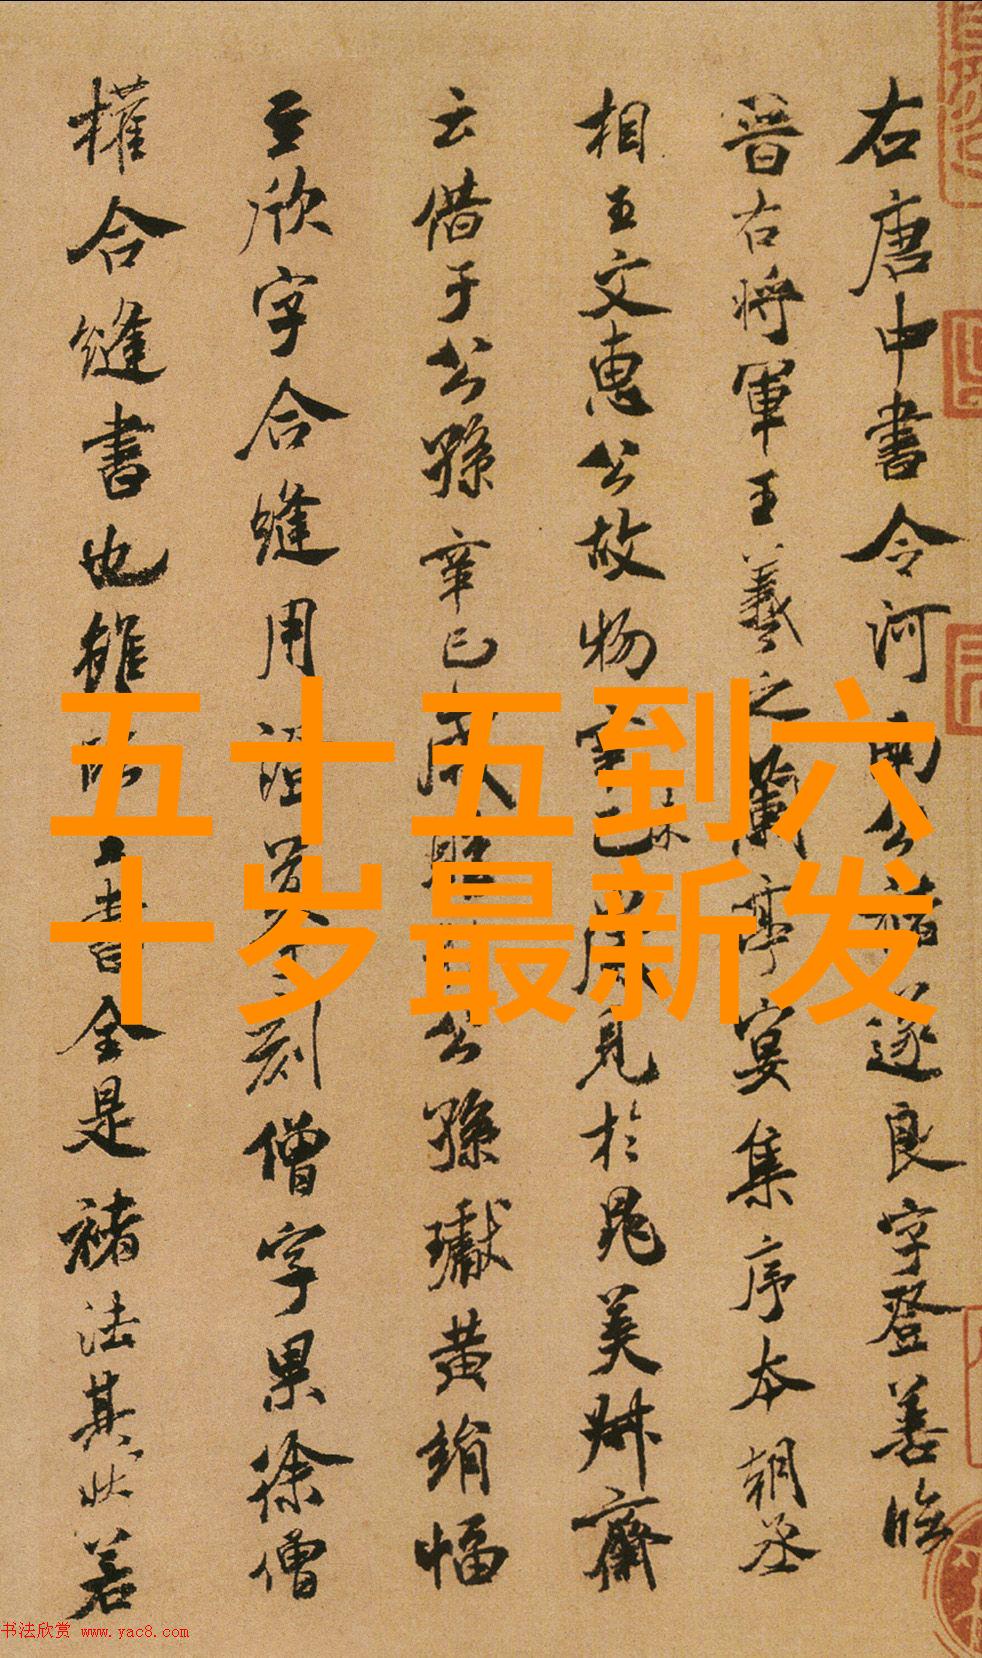 右唐中書令河南公褚遂良字登善臨
晉右將軍王羲之蘭亭宴集序本朝丞
相王文惠公故物辛巳歲見於晁美叔齋
云借于公孫辛巳歲購公孫瓛黃絹幅
至欣字合縫用證摹刻僧字果徐僧
權合縫書也雖臨王書全是褚法其狀若
五十五到六
十岁最新发
书法欣赏 www.yac8.com